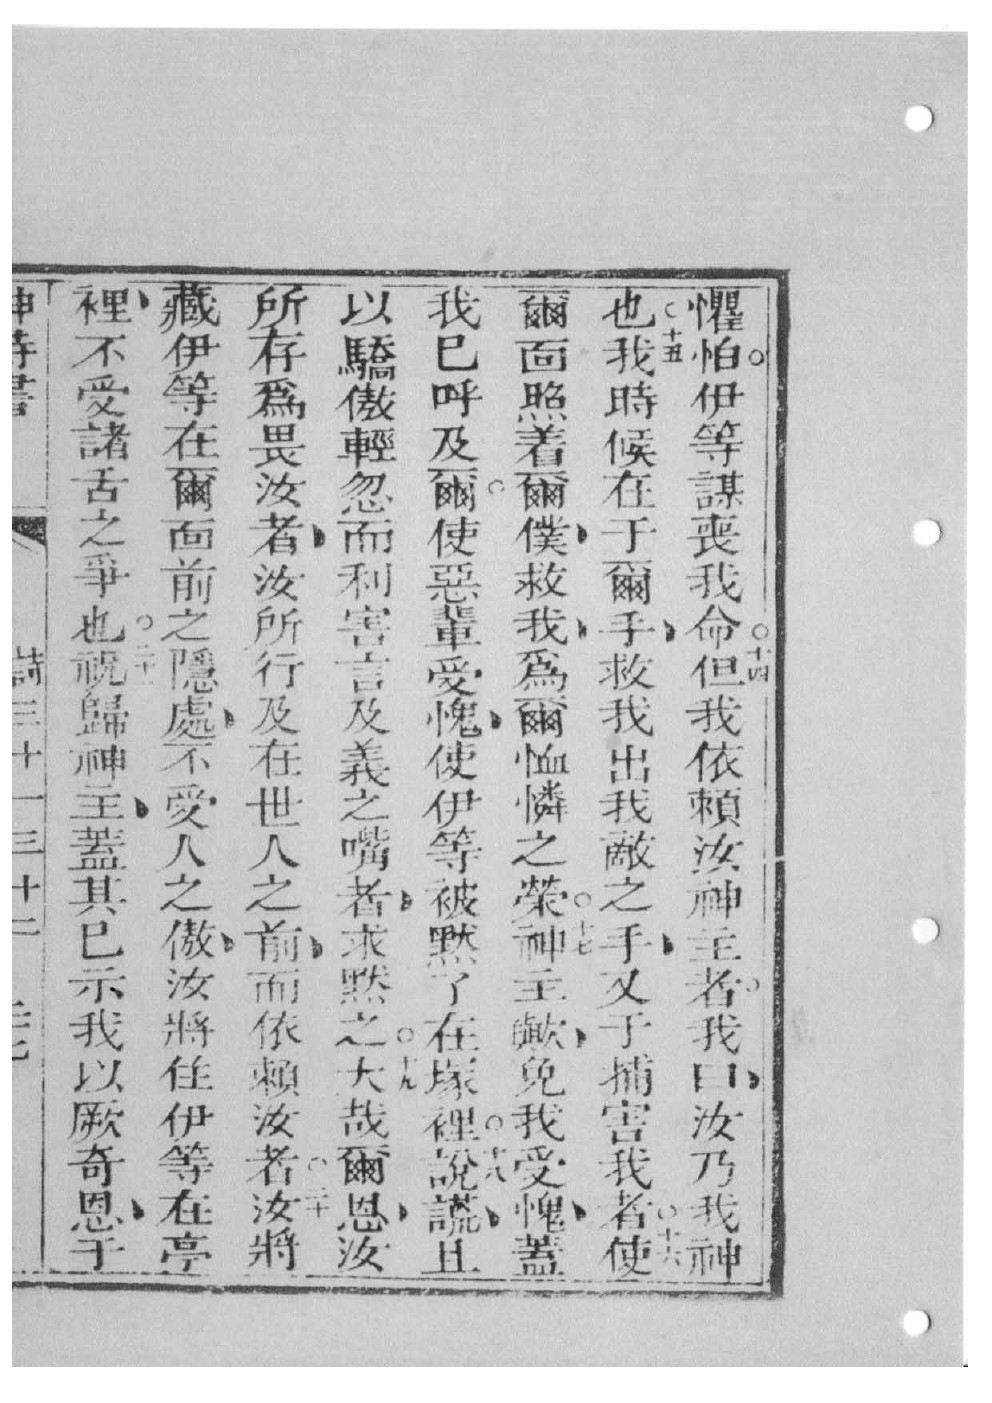 懼怕。伊等謀喪我命。十四但我依賴汝神主者。我曰、汝乃我神
也。十五我時候在于爾手、救我出我敵之手、又于捕害我者。十六使
爾面照着爾僕、救我、爲爾恤憐之榮。十七神主歟、免我受愧、蓋
我已呼及爾。使惡輩受愧、使伊等被黙了在塚裡。十八說謊、且
以驕傲輕忽而利害言及義之嘴者、求黙之。十九大哉爾恩、汝
所存爲畏汝者、汝所行及在世人之前、而依賴汝者。二十汝將
藏伊等在爾面前之隱處、不受人之傲、汝將住伊等在亭
裡、不受諸舌之爭也。二十一祝歸神主、蓋其已示我以厥奇恩、于
神詩書 詩三十一 三十二